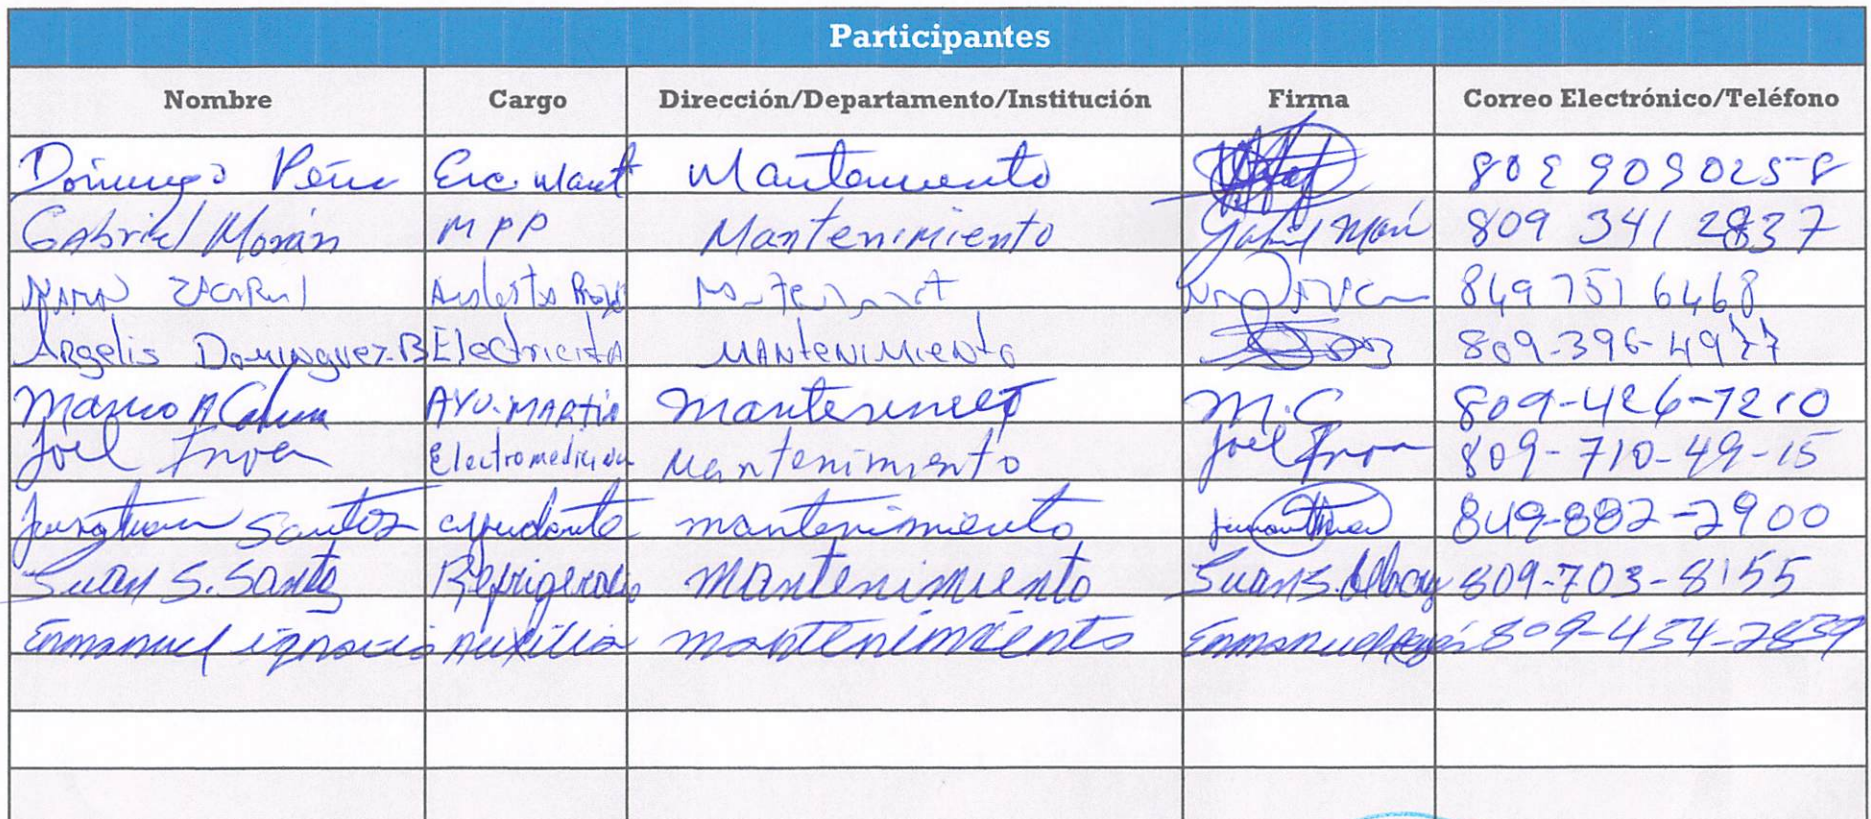 Participantes
Nombre Cargo Dirección/Departamento/Institución Firma Correo Electrónico/Teléfono
Domingo Peña Enc. Mant Mantenimiento 809 909 0258
Gabriel Morán MPP Mantenimiento Gabriel Morán 809 341 2837
849 751 6468
Argelis Dominguez.B Electricista MANtENiMiENto 809-396-4977
AYU. Mantenimient M.C 809-426-7210
Joel Electromedicina Mantenimiento Joel 809-710-49-15
Santos ayudante mantenimiento 849-882-2900
Juan S. Santos Refrigeración Mantenimiento Juan S. 809-703-8155
Enmanuel ignacio Auxilia mantenimiento Enmanuel 809-454-2839